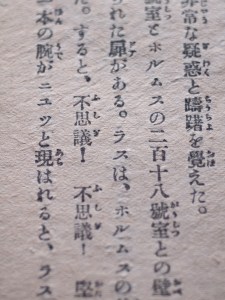 非常な疑惑と躊躇を覺えた。
號室とホルムスの二百十八號室との壁
られた扉がある。ラスは、ホルムスの
た。すると、不思議！　不思議！
一本の腕がニュッと現はれると、ラス